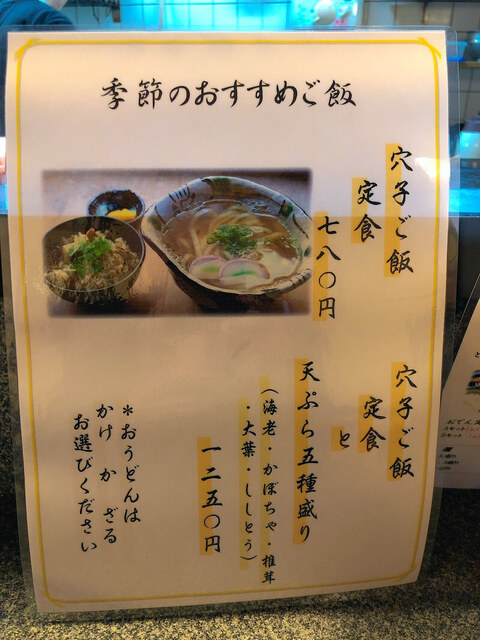 季節のおすすめご飯
穴子ご飯
定食
七八〇円
穴子ご飯
定食
と
天ぷら五種盛り
（海老・かぼちゃ・椎茸
・大葉・ししとう）
一二五〇円
＊おうどんは
かけ か ざる
お選びください